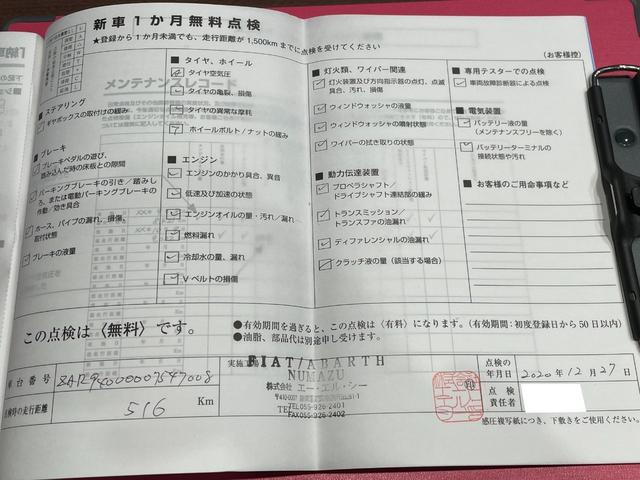 新車1か月無料点検
★登録から1か月未満でも、走行距離が1,500kmまでに点検を受けてください
(お客様控)
ステアリング
ギヤボックスの取付けの緩み
ブレーキ
ブレーキペダルの遊び、
踏み込んだ時の床板との隙間
パーキングブレーキの引き/踏みし
ろ、または電動パーキングブレーキの
作動/効き具合
ホース、パイプの漏れ、損傷、
取付状態
ブレーキの液量
■ タイヤ、ホイール
タイヤ空気圧
タイヤの亀裂、損傷
タイヤの異常な摩耗
ホイールボルト/ナットの緩み
■ エンジン
エンジンのかかり具合、異音
低速及び加速の状態
エンジンオイルの量・汚れ/漏れ
燃料漏れ
冷却水の量、漏れ
Vベルトの損傷
■ 灯火類、ワイパー関連
灯火装置及び方向指示器の点灯、点滅
具合、汚れ、損傷
ウィンドウォッシャの液量
ウィンドウォッシャの噴射状態
ワイパーの拭き取りの状態
■ 動力伝達装置
プロペラシャフト/
ドライブシャフト連結部の緩み
トランスミッション/
トランスファの油漏れ
ディファレンシャルの油漏れ
クラッチ液の量(該当する場合)
■ 専用テスターでの点検
車両故障診断器による点検
■ 電気装置
バッテリー液の量
(メンテナンスフリーを除く)
バッテリーターミナルの
接続状態や汚れ
■ お客様のご用命事項など
この点検は〈無料〉です。
●有効期間を過ぎると、この点検は〈有料〉になります。(有効期間:初度登録日から50日以内)
●油脂、部品代は別途申し受けます。
車台番号
ZAR94000007547008
点検時の走行距離
516
Km
実施
FIAT/ABARTH
NUMAZU
株式会社 エー・エル・シー
TEL055-926-2401
FAX055-926-2402
印
点検の
年月日
2020年12月27日
点検
責任者
感圧複写紙につき、下敷きをご使用ください。